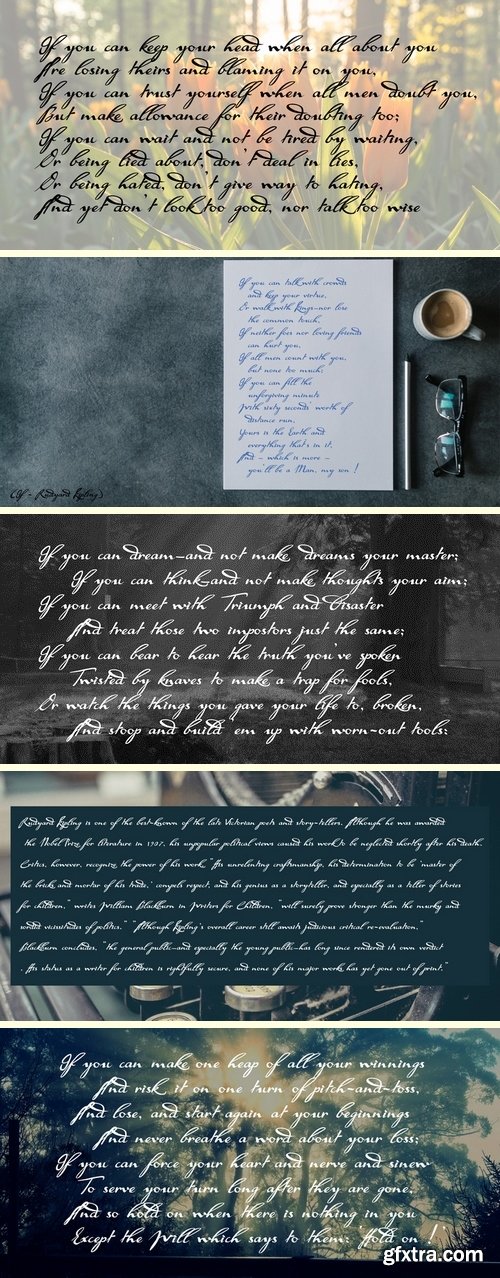 If you can keep your head when all about you
Are losing theirs and blaming it on you,
If you can trust yourself when all men doubt you,
But make allowance for their doubting too;
If you can wait and not be tired by waiting,
Or being lied about, don't deal in lies,
Or being hated, don't give way to hating,
And yet don't look too good, nor talk too wise
If you can talk with crowds
and keep your virtue,
Or walk with Kings—nor lose
the common touch,
If neither foes nor loving friends
can hurt you,
If all men count with you,
but none too much;
If you can fill the
unforgiving minute
With sixty seconds' worth of
distance run,
Yours is the Earth and
everything that's in it,
And – which is more –
you'll be a Man, my son !
(If - Rudyard Kipling)
If you can dream—and not make dreams your master;
If you can think—and not make thoughts your aim;
If you can meet with Triumph and Disaster
And treat those two impostors just the same;
If you can bear to hear the truth you've spoken
Twisted by knaves to make a trap for fools,
Or watch the things you gave your life to, broken,
And stoop and build 'em up with worn-out tools:
Rudyard Kipling is one of the best-known of the late Victorian poets and story-tellers. Although he was awarded
the Nobel Prize for literature in 1907, his unpopular political views caused his work to be neglected shortly after his death.
Critics, however, recognize the power of his work. "His unrelenting craftsmanship, his determination to be 'master of
the bricks and mortar of his trade,' compels respect, and his genius as a storyteller, and especially as a teller of stories
for children," writes William Blackburn in Writers for Children, "will surely prove stronger than the murky and
sordid vicissitudes of politics." "Although Kipling's overall career still awaits judicious critical re-evaluation,"
Blackburn concludes, "the general public—and especially the young public—has long since rendered its own verdict
. His status as a writer for children is rightfully secure, and none of his major works has yet gone out of print."
If you can make one heap of all your winnings
And risk it on one turn of pitch-and-toss,
And lose, and start again at your beginnings
And never breathe a word about your loss;
If you can force your heart and nerve and sinew
To serve your turn long after they are gone,
And so hold on when there is nothing in you
Except the Will which says to them: 'Hold on !'
gfxtra.com